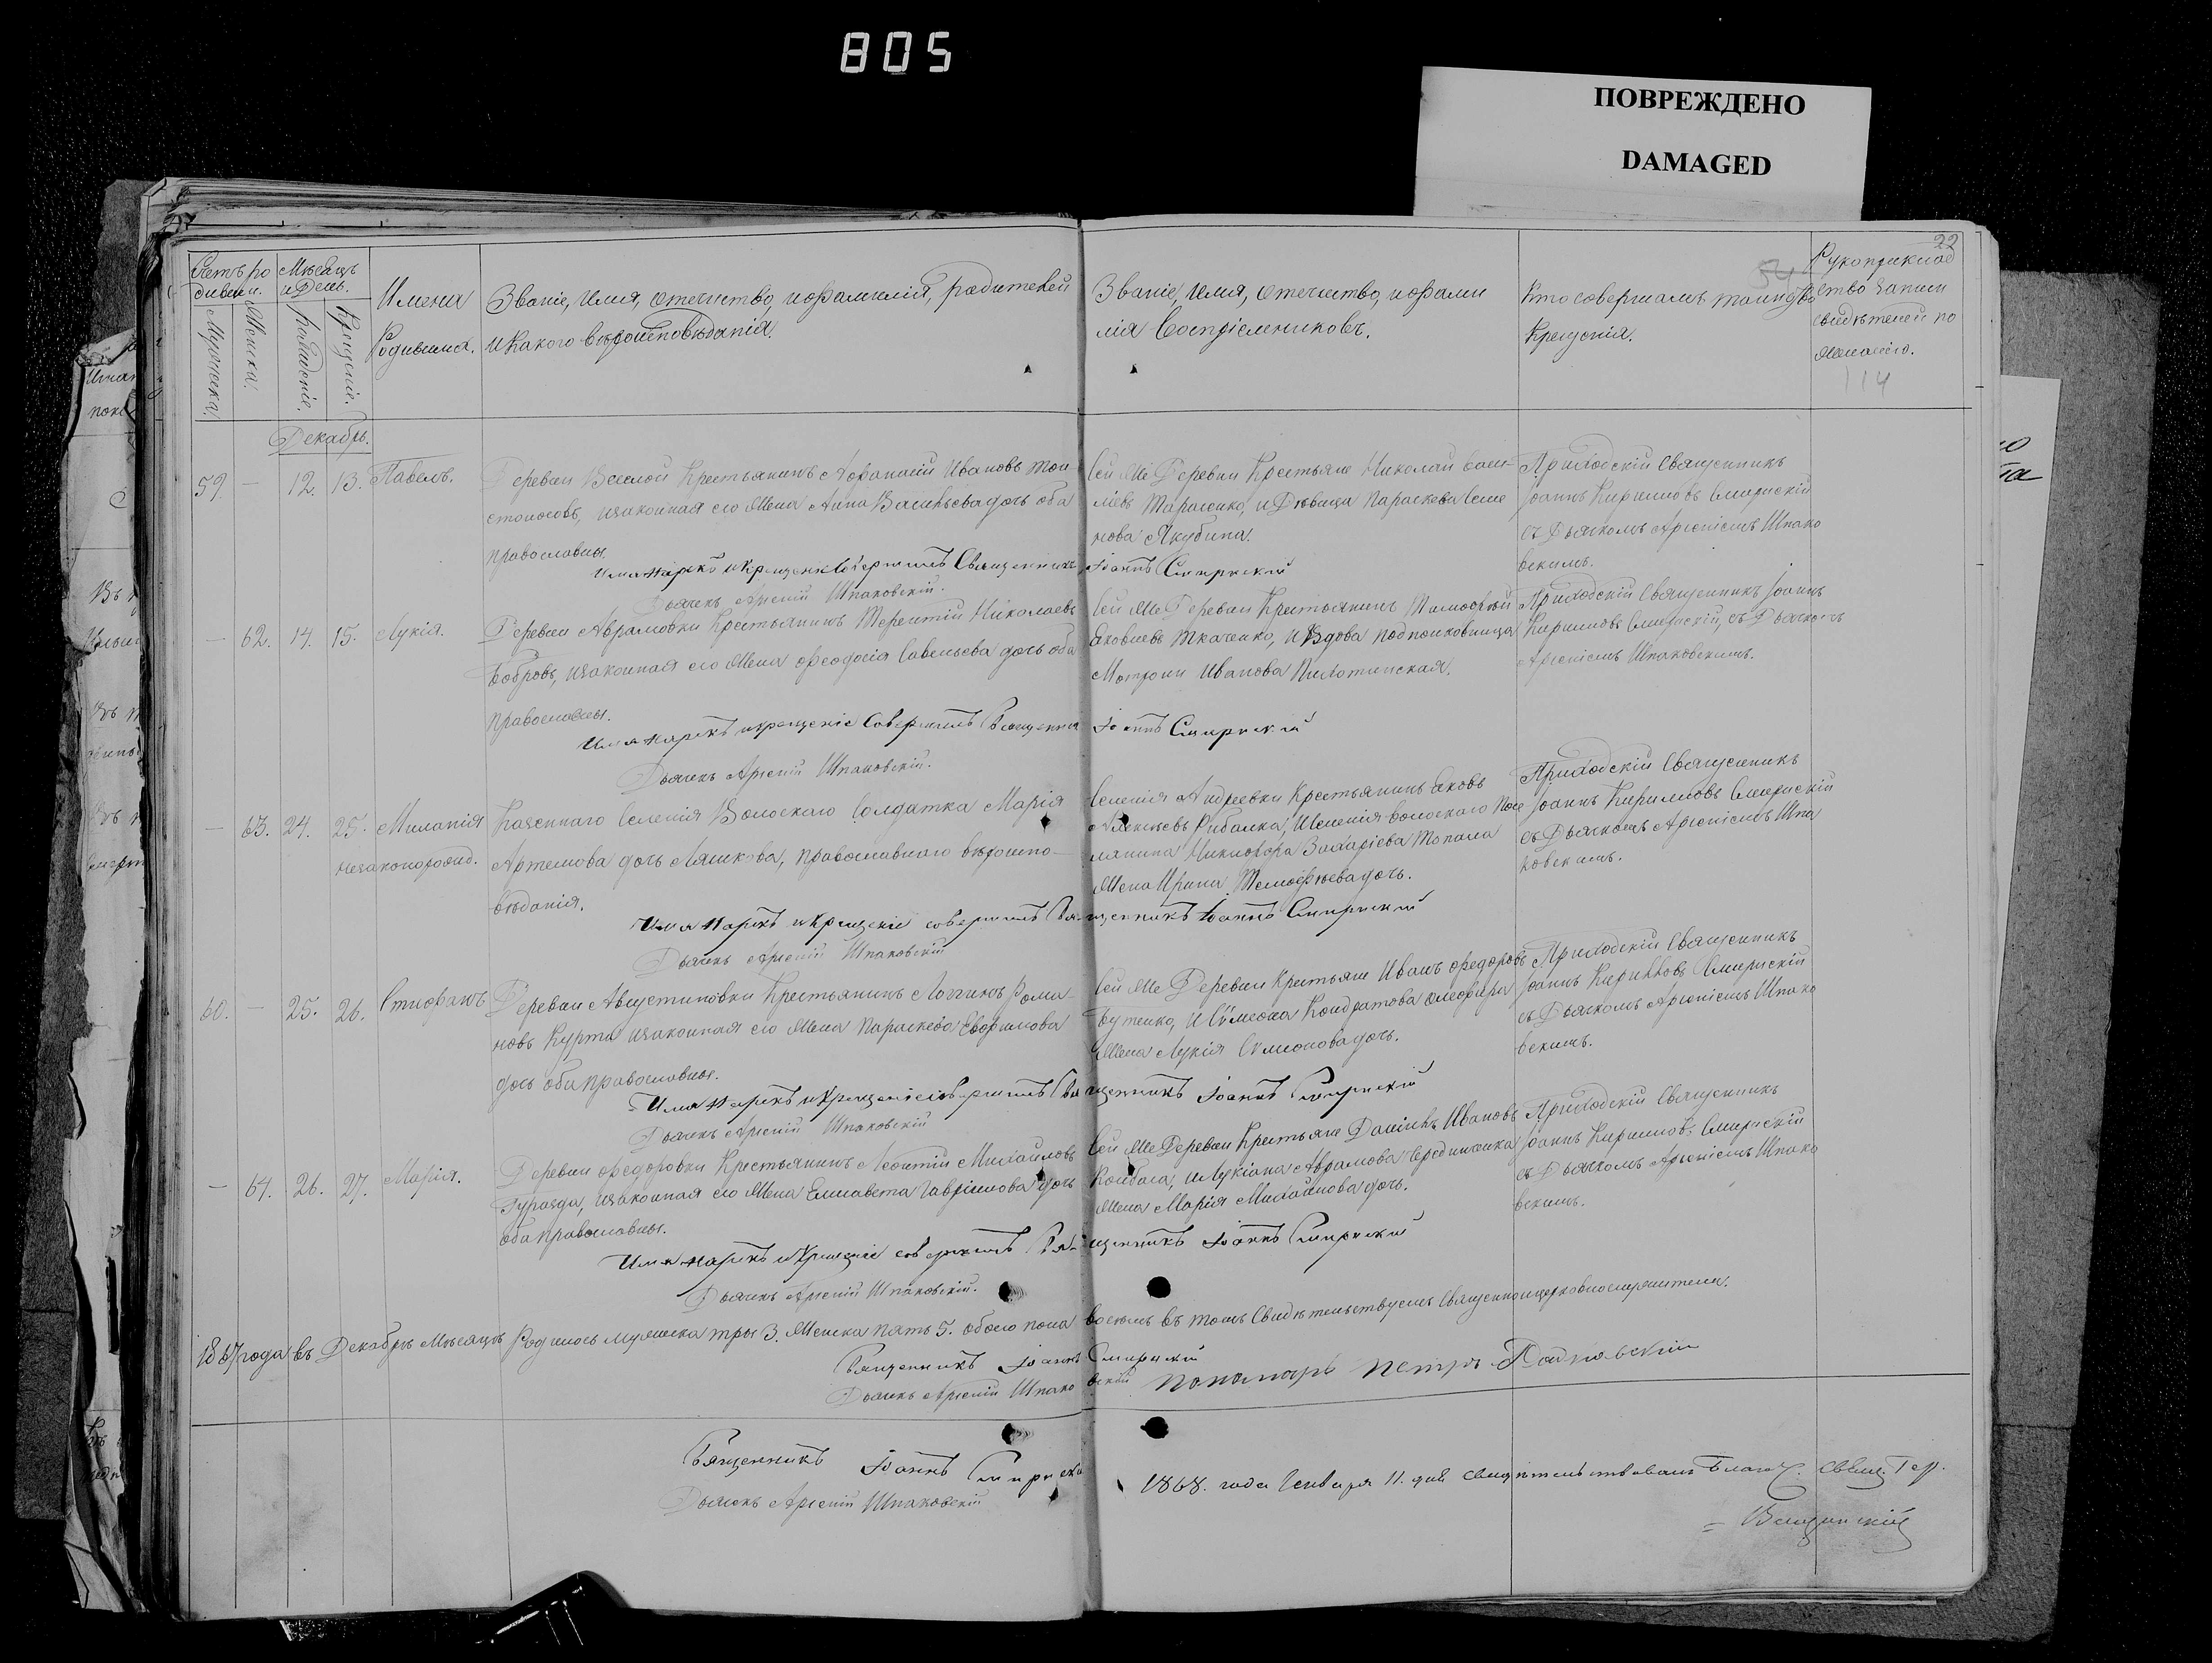 805
ПОВРЕЖДЕНО
DAMAGED
22
54
Счетъ родивши. Мужеска. Женска.
Мѣсяцъ и День. Рожденіе. Крещеніе.
Имена
Родившихъ.
Званіе, Имя, Отчество, и фамилія, родителей
и какого вѣроисповѣданія.
Званіе, Имя, Отчество, и фами
лія Воспріемниковъ.
Кто совершалъ таинство
Крещенія.
Рукоприклад
ство записи
свидѣтелей по
желанію.
114
Декабрь.
59. — 12. 13. Павелъ.
Деревни Веселой Крестьянинъ Афанасій Ивановъ Тон
стоносовъ, изаконная его Жена Анна Васильева дочь оба
православны.
Сей же Деревни Крестьяне Николай Васи-
Тарасенко, и Дѣвица Параскева Семе
нова Якубина.
Приходскій Священникъ
Іоаннъ Кирилловъ Смирнскій
съ Дьячкомъ Арсеніемъ Шпако
вскимъ.
Имя нарекъ и крещеніе Совершилъ Священникъ Іоаннъ Смирнскій
Дьячекъ Арсеній Шпаковскій.
— 62. 14. 15. Лукія.
Деревни Аврамовки Крестьянинъ Терентій Николаевъ
Бобровъ, изаконная его Жена Феодосія Савельева дочь оба
православны.
Сей же Деревни Крестьянинъ Тимофей
Яковлевъ Ткаченко, и Вдова подполковница
Матрона Иванова
Приходскій Священникъ Іоаннъ
Кирилловъ Смирнскій, съ Дьячкомъ
Арсеніемъ Шпаковскимъ.
Имя нарекъ и крещеніе Совершилъ Священникъ Іоаннъ Смирнскій
Дьячекъ Арсеній Шпаковскій.
— 63. 24. 25. Миланія
незаконорожд.
Казеннаго Селенія Волоскаго Солдатка Марія
Артемова дочь Ляшкова, православнаго вѣроиспо-
вѣданія.
Селенія Андреевки Крестьянинъ Яковъ
Алексѣевъ Рибалка, и Селенія Волоскаго Посе
лянина Никифора Захаріева Топала
Жена Ирина Тимофѣева дочь.
Приходскій Священникъ
Іоаннъ Кирилловъ Смирнскій
съ Дьячкомъ Арсеніемъ Шпа
ковскимъ.
Имя Нарекъ и Крещеніе совершилъ Священникъ Іоаннъ Смирнскій
Дьячекъ Арсеній Шпаковскій
60. — 25. 26. Стифанъ
Деревни Августиновки Крестьянинъ Логгинъ Рома-
новъ Курта изаконная его Жена Параскева Евфимова
дочь оба православны.
Сей же Деревни Кретьяне Иванъ Федоровъ
Бутенко, и Симеона Кондратова
Жена Лукія Симионова дочь.
Приходскій Священникъ
Іоаннъ Кирилловъ Смирнскій
съ Дьячкомъ Арсеніемъ Шпако
вскимъ.
Имя Нарекъ и Крещеніе совершилъ Священникъ Іоаннъ Смирнскій
Дьячекъ Арсеній Шпаковскій
— 64. 26. 27. Марія.
Деревни Федоровки Крестьянинъ Леонтій Михайловъ
Гуразда, изаконная его Жена Елисавета Гаврилова дочь
оба православны.
Сей же Деревни Крестьяне Даніилъ Ивановъ
Ковбаса, и Лукіана Аврамова
Жена Марія Михайлова дочь.
Приходскій Священникъ
Іоаннъ Кирилловъ Смирнскій
съ Дьячкомъ Арсеніемъ Шпако
вскимъ.
Имя нарекъ и Крещеніе совершилъ Священникъ Іоаннъ Смирнскій
Дьячекъ Арсеній Шпаковскій.
1867 года въ Декабрѣ Мѣсяцѣ Родилось мужеска три 3. Женска пять 5. обоего пола восемь въ томъ Свидѣтельствуемъ Священноицерковнослужители.
Священникъ Іоаннъ Смирнскій
Дьячекъ Арсеній Шпаковскій Пономарь Петръ
Священникъ Іоаннъ Смирнскій
Дьячекъ Арсеній Шпаковскій
1868. года Генваря 11. дня свидѣтельствовалъ Благоч. Свящ.